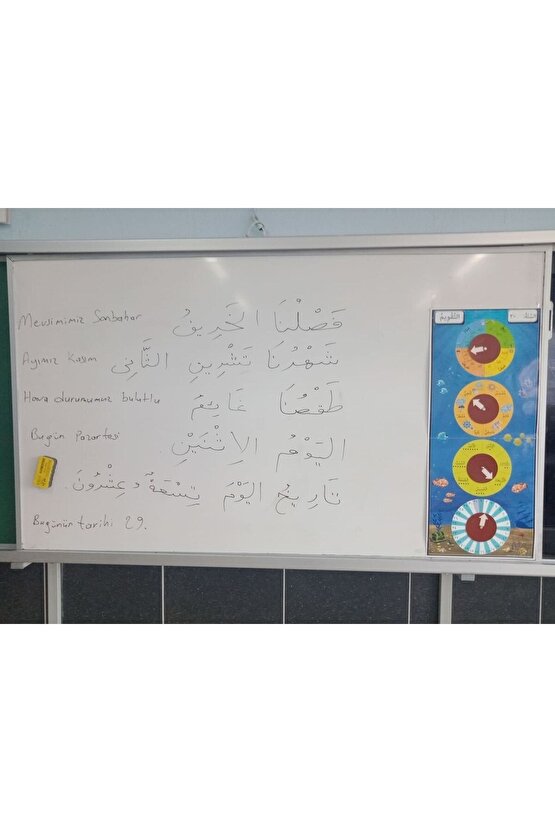 Mevsimimiz Sonbahar فَصْلُنَا الخَرِيفُ
Ayımız Kasım شَهْرُنَا تَشْرِينِ الثَّانِي
Hava durumumuz bulutlu طَقْصُنَا غَائِمُ
Bugün Pazartesi اليَوْمُ الِاثْنَيْنِ
تَارِيخُ اليَوْمَ تِسْعَةُ وَعِشْرُونَ.
Bugünün tarihi 29.
التقويم